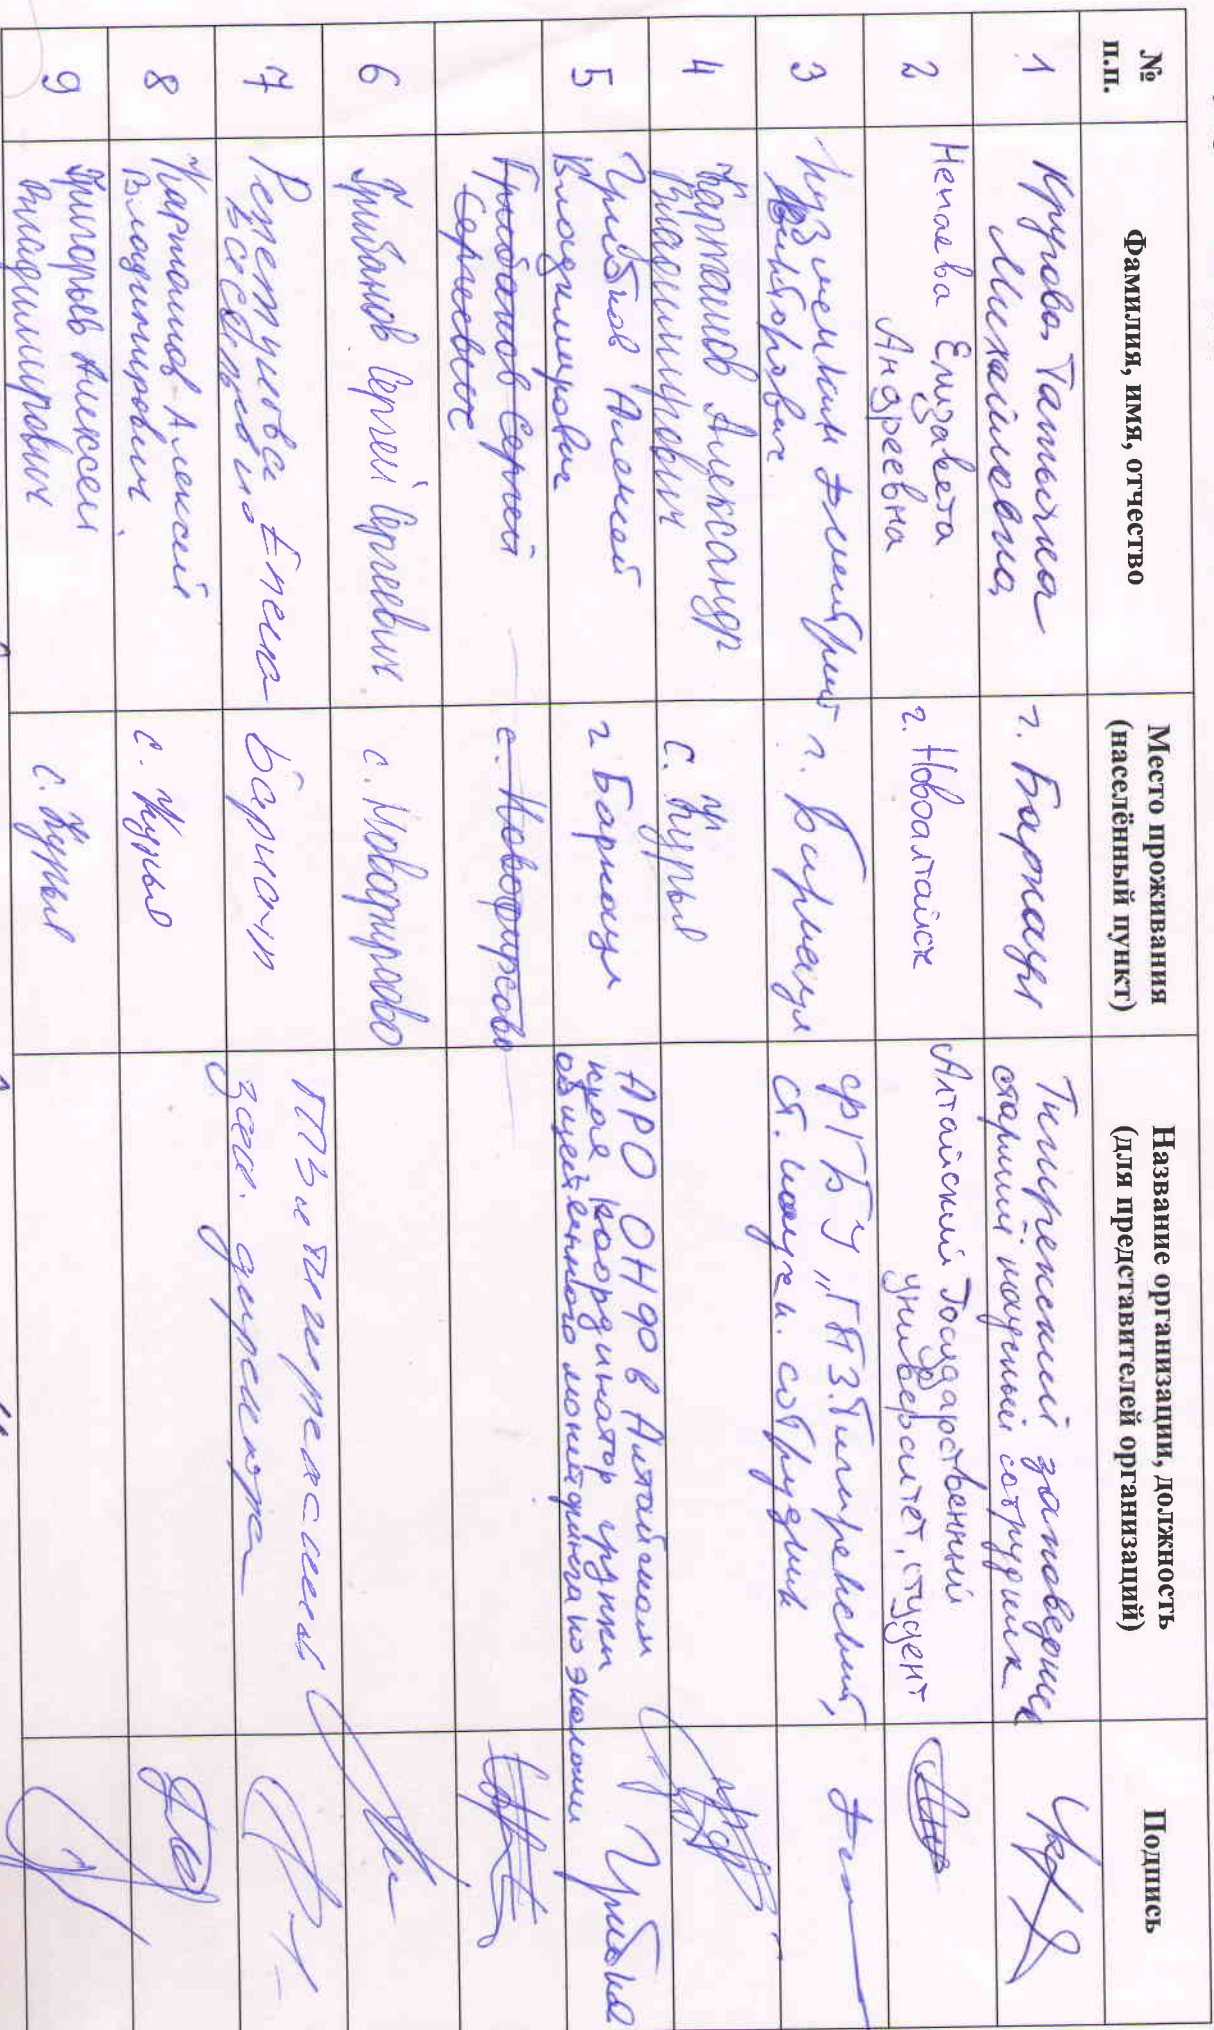 №
п.п.
Фамилия, имя, отчество
Место проживания
(населённый пункт)
Название организации, должность
(для представителей организаций)
Подпись
1
Круговая Татьяна
Михайловна
г. Барнаул
Тигирекский заповедник
старший научный сотрудник
2
Нечаева Елизавета
Андреевна
г. Новоалтайск
Алтайский Государственный
университет, студент
3
Дмитрий
Викторович
г. Барнаул
ФГБУ „ГПЗ Тигирекский,
ст. научн. сотрудник
4
Карташов Александр
Владимирович
с. Курья
5
Грибков Алексей
Владимирович
г. Барнаул
АРО ОНФ в Алтайском
крае, координатор группы
общественного мониторинга по экологии
Грибанов Сергей
Сергеевич
с. Новофирсово
6
Грибанов Сергей Сергеевич
с. Новофирсово
7
Елена
Барнаул
ГПЗ
зам. директора
8
Карташов Алексей
Владимирович
с. Курья
9
Григорьев Алексей
Владимирович
с. Курья